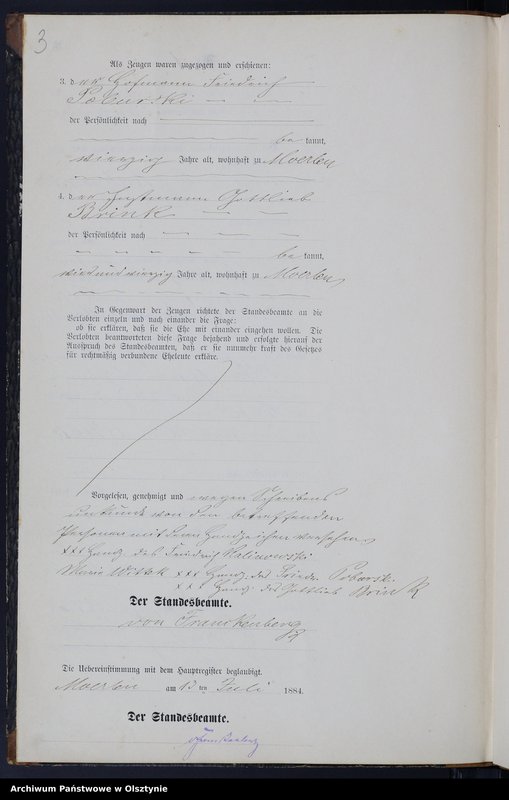 3
Als Zeugen waren zugezogen und erschienen:
3. der Hofmann Friedrich
Poburski
der Persönlichkeit nach
be kannt,
vierzig Jahre alt, wohnhaft zu Moerlen
4. der Gottlieb
Brink
der Persönlichkeit nach
be kannt,
vierundvierzig Jahre alt, wohnhaft zu Moerlen
In Gegenwart der Zeugen richtete der Standesbeamte an die
Verlobten einzeln und nach einander die Frage:
ob sie erklären, daß sie die Ehe mit einander eingehen wollen. Die
Verlobten beantworteten diese Frage bejahend und erfolgte hierauf der
Ausspruch des Standesbeamten, daß er sie nunmehr kraft des Gesetzes
für rechtmäßig verbundene Eheleute erkläre.
Vorgelesen, genehmigt und wegen Schreibens
unkunde von den betreffenden
Personen mit ihren Handzeichen versehen
+++ Handz. des Friedrich Kalinowski
Marie Wittek +++ Handz. des Friedr. Poburski
+++ Handz. des Gottlieb Brink
Der Standesbeamte.
von Franckenberg
Die Uebereinstimmung mit dem Hauptregister beglaubigt.
Moerlen am 13 ten Juli 1884.
Der Standesbeamte.
Archiwum Państwowe w Olsztynie